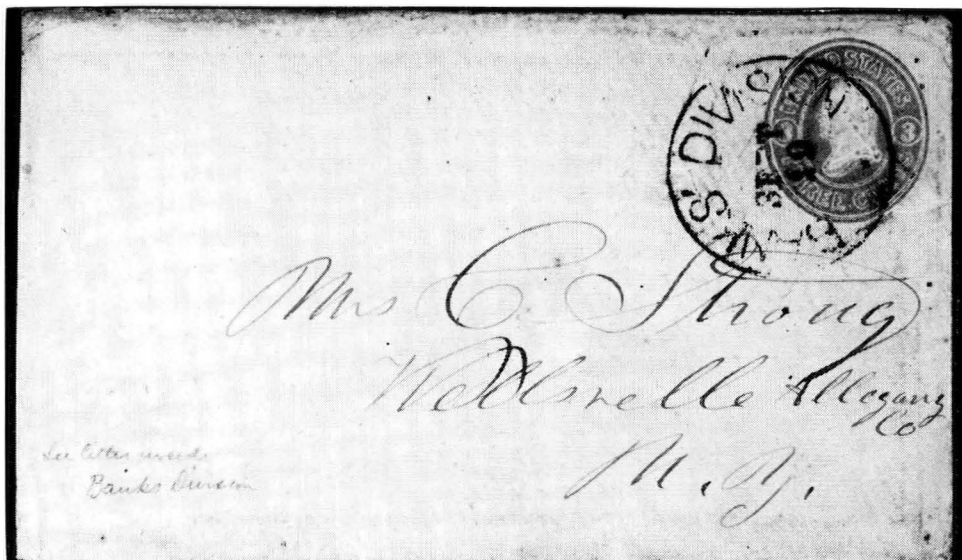 UNITED STATES
3
THREE CENTS
S' DIVIS
SEPT
Mrs C. Strong
Wellsvelle Allegany
Co
N. Y.
See letter inside
Banks Division